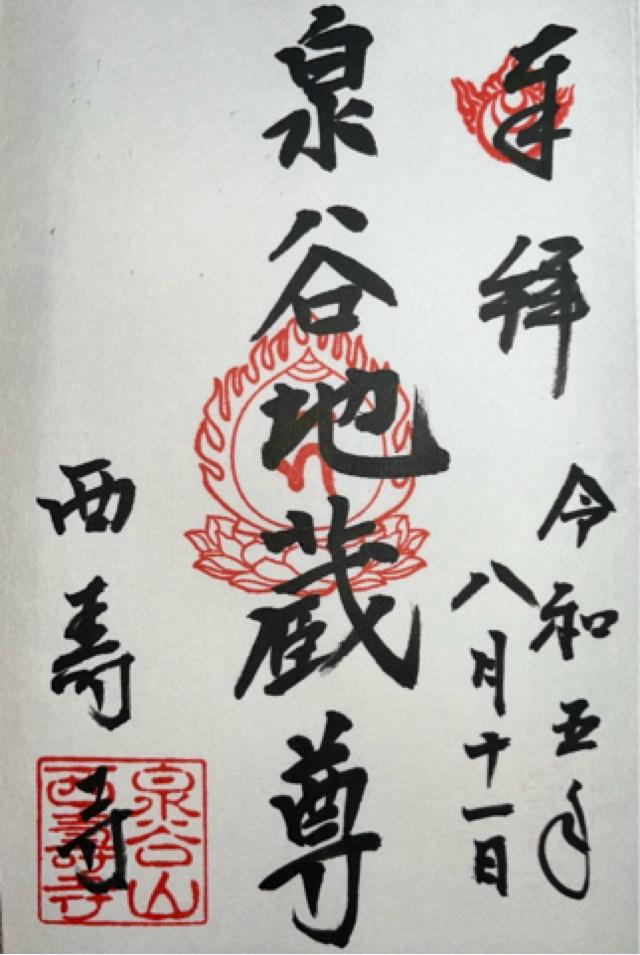 奉拝
令和五年
八月十一日
泉谷地蔵尊
西寿寺
泉谷山
西壽寺